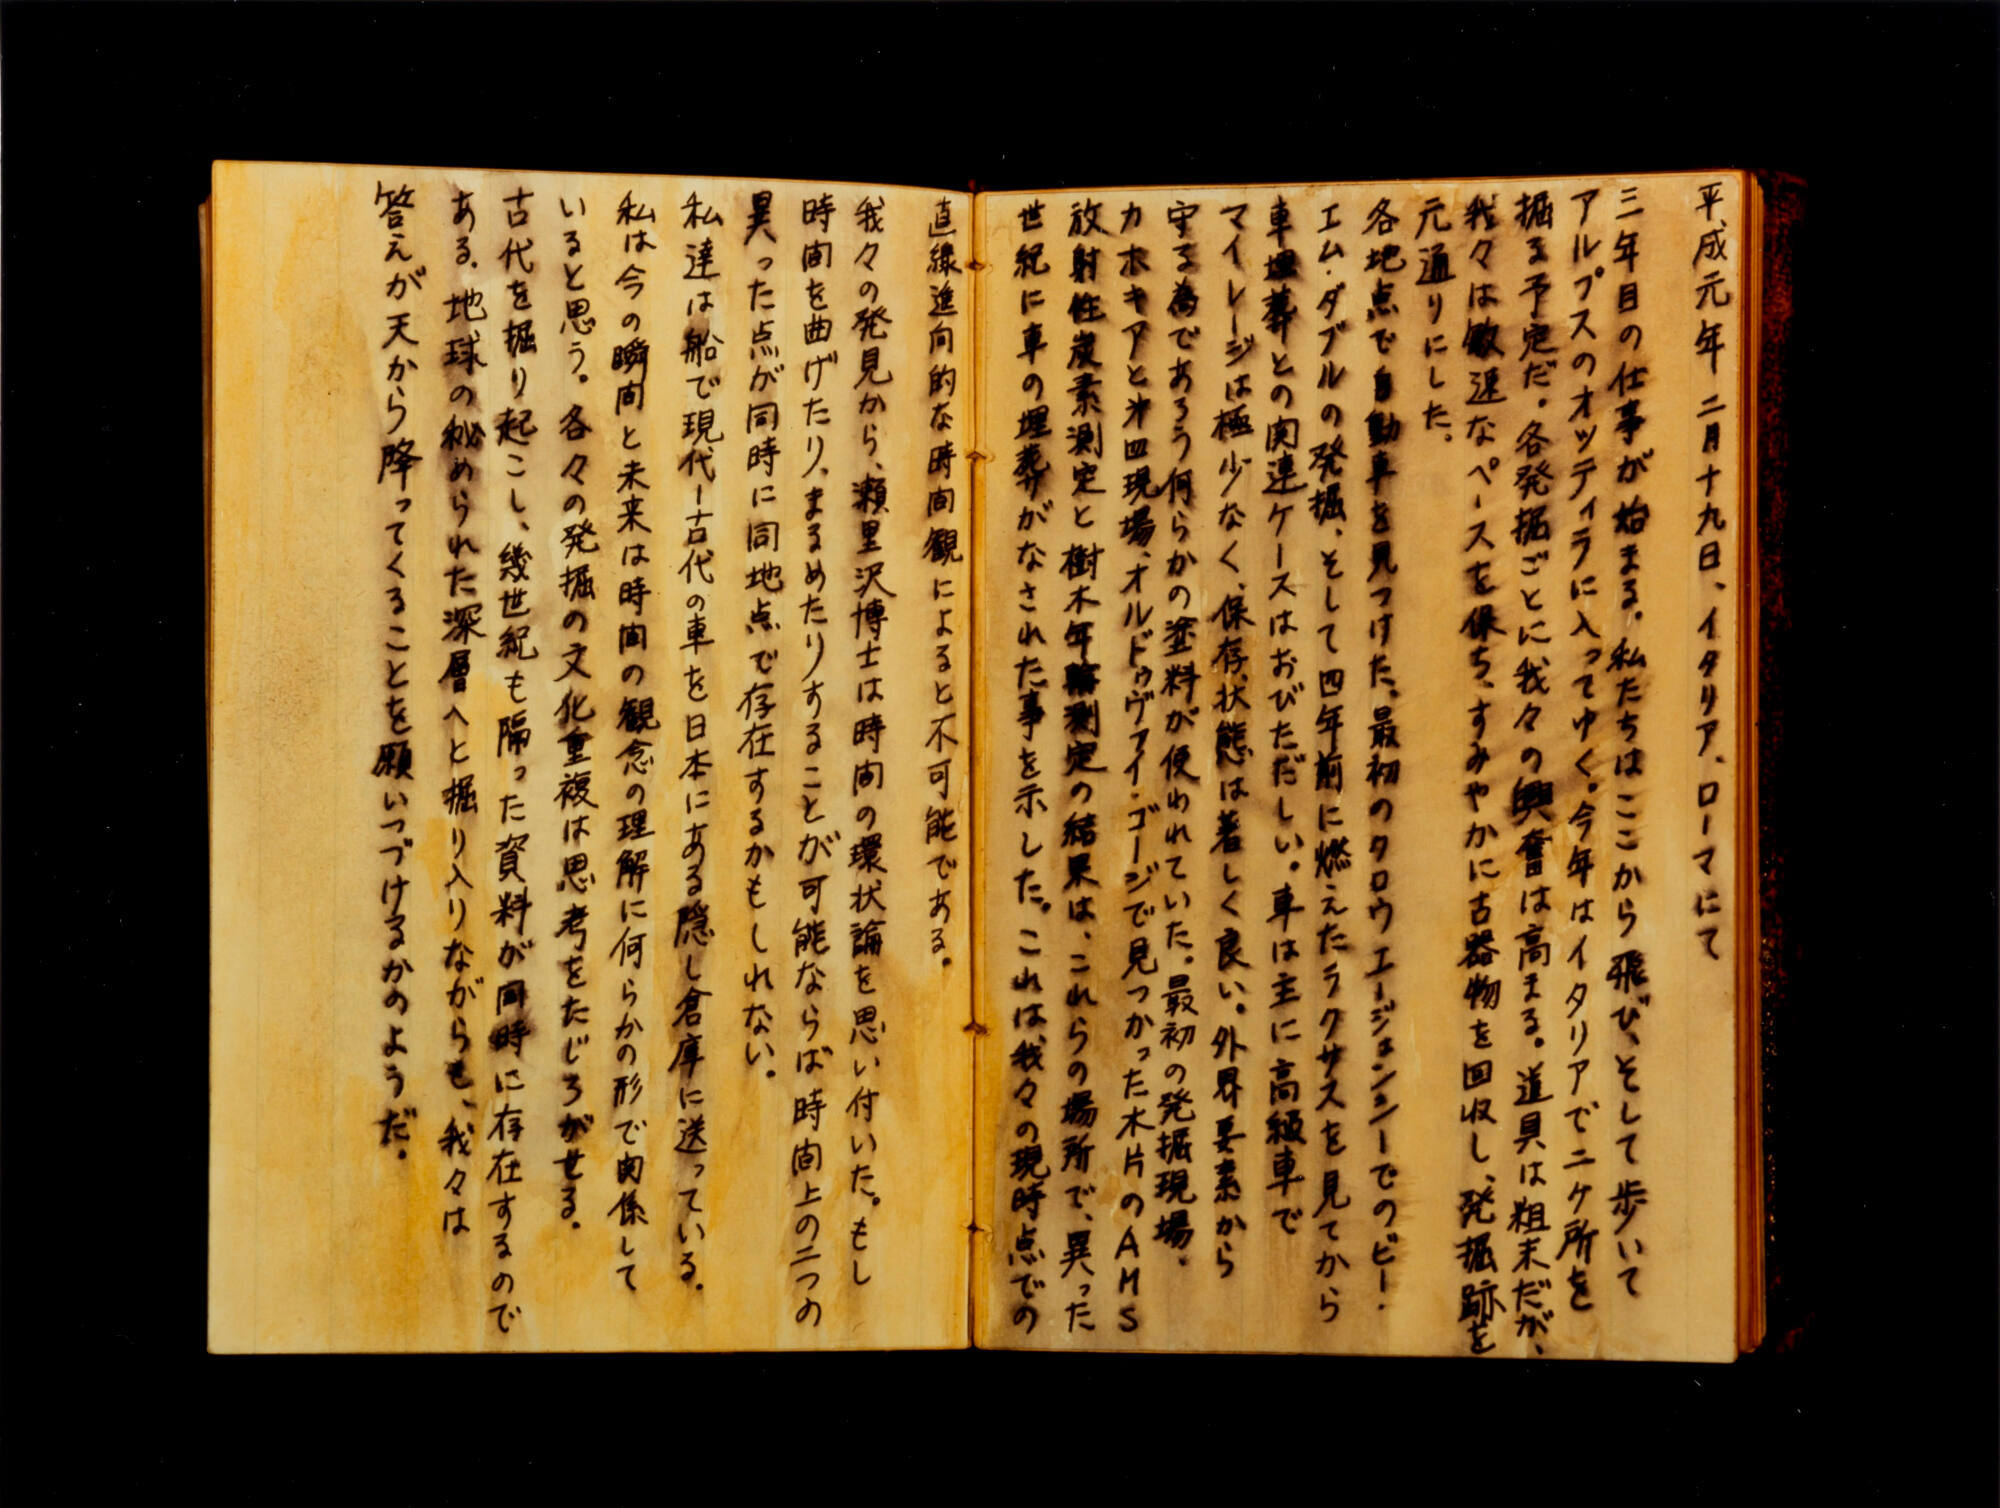 平成元年 二月十九日、イタリア、ローマにて
三年目の仕事が始まる。私たちはここから飛び、そして歩いて
アルプスのオッティラに入ってゆく。今年はイタリアで二ケ所を
掘る予定だ。各発掘ごとに我々の興奮は高まる。道具は粗末だが、
我々は敏速なペースを保ち、すみやかに古器物を回収し、発掘跡を
元通りにした。
各地点で自動車を見つけた。最初のクロウエージョンシーでのビー・
エム・ダブルの発掘、そして四年前に燃えたラクサスを見てから
車埋葬との関連ケースはおびただしい。車は主に高級車で
マイレージは極少なく、保存状態は著しく良い。外界要素から
守る為であろう何らかの塗料が使われていた。最初の発掘現場、
カホキアと㐧四現場、オルドゥヴァイ・ゴージで見つかった木片のAMS
放射性炭素測定と樹木年輪測定の結果は、これらの場所で、異った
世紀に車の埋葬がなされた事を示した。これは、我々の現時点での
直線進向的な時間観によると不可能である。
我々の発見から、瀬里沢博士は時間の環状論を思い付いた。もし
時間を曲げたり、まるめたりすることが可能ならば時間上の二つの
異った点が同時に同地点で存在するかもしれない。
私達は船で現代ー古代の車を日本にある隠し倉庫に送っている。
私は今の瞬間と未来は時間の観念の理解に何らかの形で関係して
いると思う。各々の発掘の文化重複は思考をたじろがせる。
古代を掘り起こし、幾世紀も隔った資料が同時に存在するので
ある。地球の秘められた深層へと掘り入りながらも、我々は
答えが天から降ってくることを願いつづけるかのようだ。